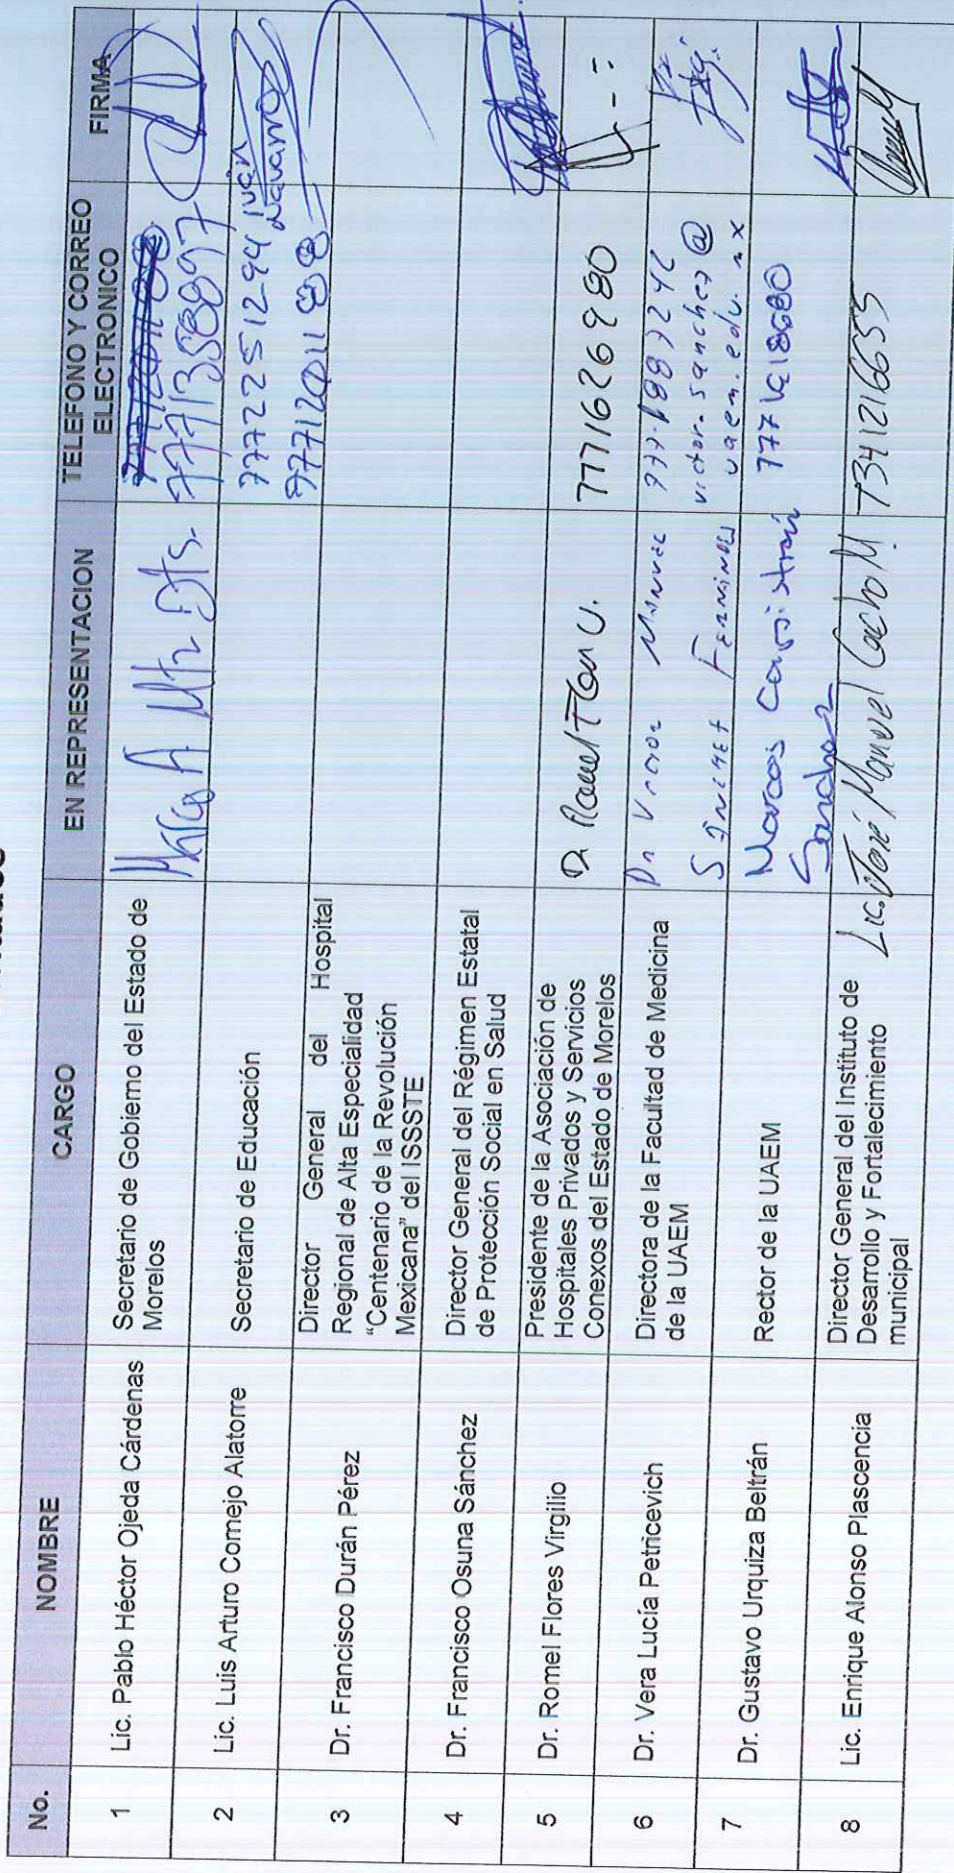 No. NOMBRE CARGO EN REPRESENTACION TELEFONO Y CORREO ELECTRONICO FIRMA
1 Lic. Pablo Héctor Ojeda Cárdenas
Secretario de Gobierno del Estado de
Morelos
7771358897
2 Lic. Luis Arturo Cornejo Alatorre
Secretario de Educación
7772251294 Iván
Navarro
3 Dr. Francisco Durán Pérez
Director General del Hospital
Regional de Alta Especialidad
"Centenario de la Revolución
Mexicana" del ISSSTE
4 Dr. Francisco Osuna Sánchez
Director General del Régimen Estatal
de Protección Social en Salud
5 Dr. Romel Flores Virgilio
Presidente de la Asociación de
Hospitales Privados y Servicios
Conexos del Estado de Morelos
7771626980
6 Dr. Vera Lucía Petricevich
Directora de la Facultad de Medicina
de la UAEM
Dr Victor Manuel
victor.sanchez@
uaem.edu.mx
7 Dr. Gustavo Urquiza Beltrán
Rector de la UAEM
Marcos
Sanchez
8 Lic. Enrique Alonso Plascencia
Director General del Instituto de
Desarrollo y Fortalecimiento
municipal
Lic. José Manuel
7341216655